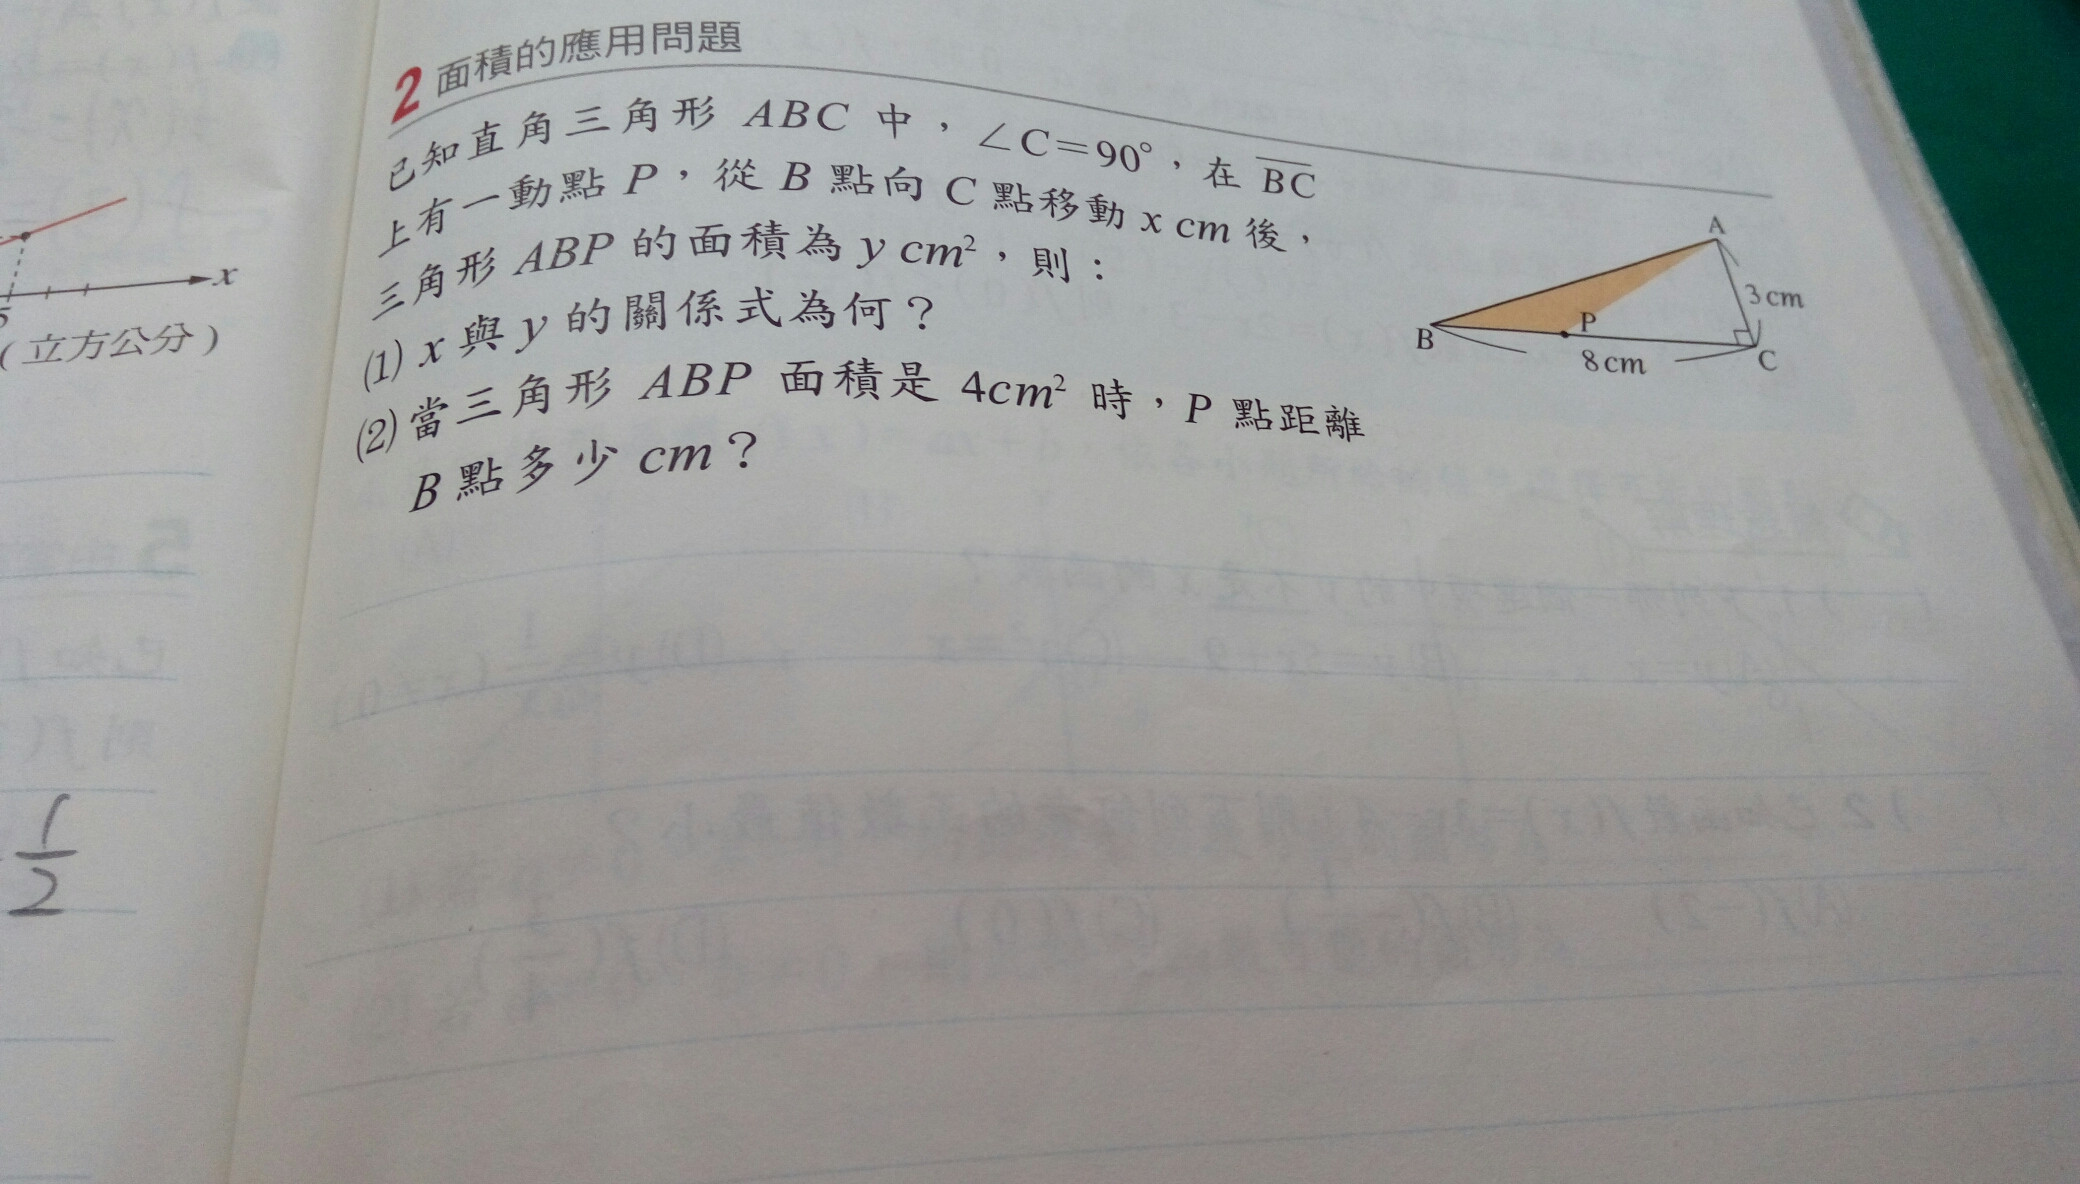 2 面積的應用問題
已知直角三角形 ABC 中，∠C=90°，在 BC
上有一動點 P，從 B 點向 C 點移動 x cm 後，
三角形 ABP 的面積為 y cm²，則：
(1) x 與 y 的關係式為何？
(2) 當三角形 ABP 面積是 4cm² 時，P 點距離
B 點多少 cm？
A
3cm
B
P
8cm
C
x
5
(立方公分)
1
2